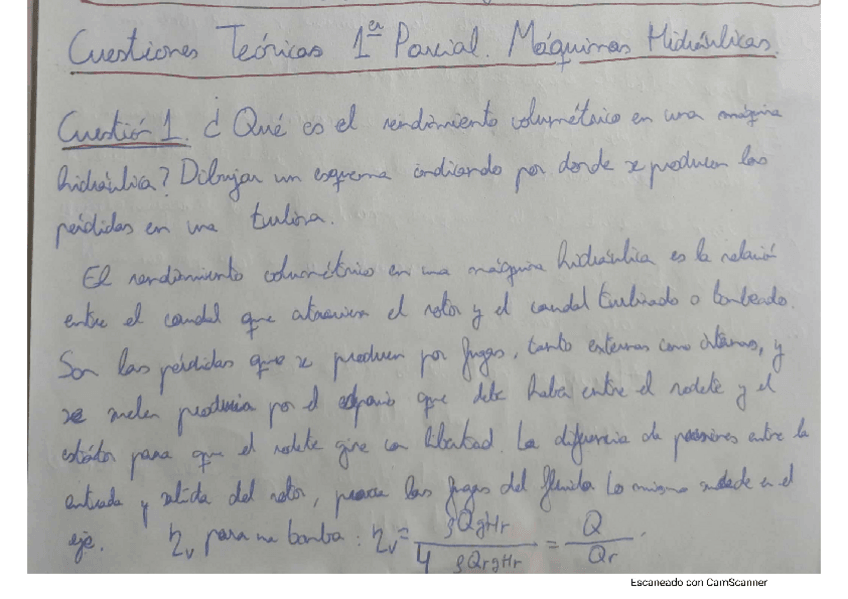 Cuestiones Teóricas 1er Parcial. Máquinas Hidráulicas.
Cuestión 1. ¿Qué es el rendimiento volumétrico en una máquina
hidráulica? Dibujar un esquema indicando por donde se producen las
pérdidas en una turbina.
El rendimiento volumétrico en una máquina hidráulica es la relación
entre el caudal que atraviesa el rotor y el caudal turbinado o bombeado.
Son las pérdidas que se producen por fugas, tanto externas como internas, y
se suelen producir por el espacio que debe haber entre el rodete y el
estátor para que el rodete gire con libertad. La diferencia de presiones entre la
entrada y salida del rotor, provoca las fugas del fluido. Lo mismo sucede en el
eje. ηv para una bomba: ηv = ρQgHr / ρQrgHr = Q / Qr.
Escaneado con CamScanner